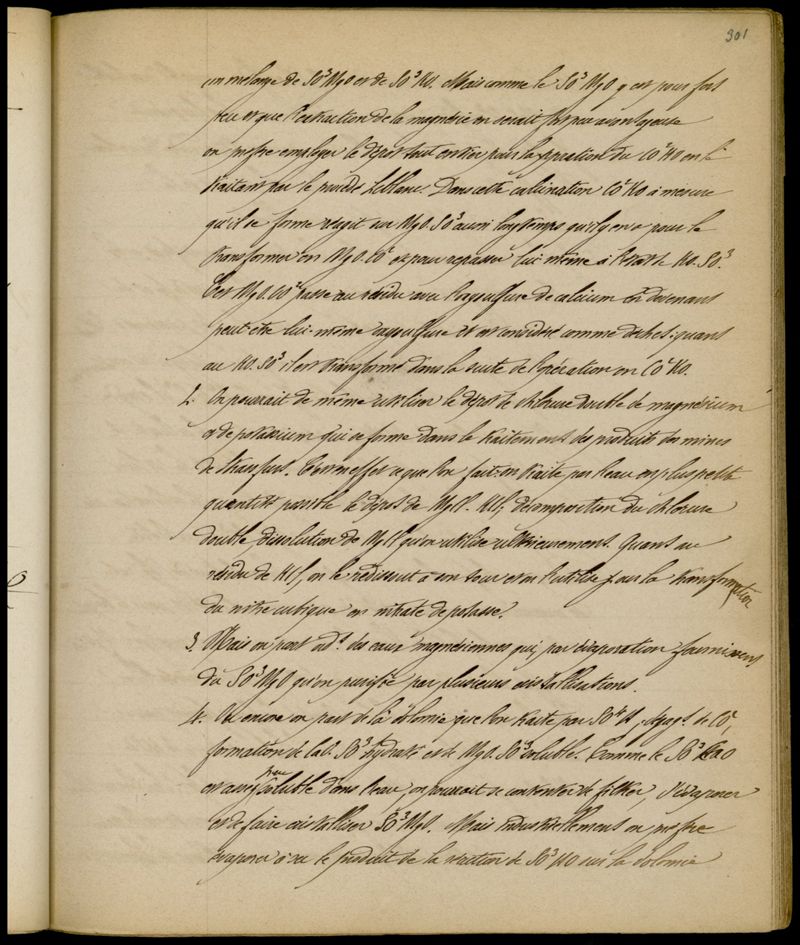 301
un mélange de SO³MgO et de SO³KO. Mais comme le SO³MgO y est pour fort
peu et que l'extraction de la magnésie en serait fort peu avantageuse
on préfère employer le dépôt tout entier pour la préparation du CO²KO en le
traitant par le procédé Leblanc. Dans cette calcination CO²KO à mesure
qu'il se forme réagit sur MgO.SO³ aussi longtemps qu'il y en a pour le
transformer en MgO.CO² et pour repasser lui même à l'état de KO.SO³.
Cet MgO.CO² passe au résidu avec l'oxysulfure de calcium en devenant
peut être lui-même oxysulfure et est considéré comme déchet: quant
au KO.SO³ il est transformé dans la suite de l'opération en CO²KO.
2. On pourrait de même utiliser le dépôt de chlorure double de magnésium
et de potassium qui se forme dans le traitement des produits des mines
de Stassfurt. C'est en effet ce que l'on fait: on traite par l'eau en plus petite
quantité possible le dépôt de MgCl.KCl; décomposition du chlorure
double, dissolution de MgCl qu'on utilise ultérieurement. Quant au
résidu de KCl, on le redissout à son tour et on l'utilise pour la transformation
du nitre cubique en nitrate de potasse.
3. Mais on part ad.^t des eaux magnésiennes qui, par évaporation fournissent
du SO³MgO qu'on purifie par plusieurs cristallisations.
4. Ou encore on part de la dolomie que l'on traite par SO³HO, dégag^t de CO²,
formation de CaO.SO³ hydraté et de MgO.SO³ soluble. Comme le SO³CaO
est assez peu soluble dans l'eau, on pourrait se contenter de filtrer, d'évaporer
et de faire cristalliser SO³MgO. Mais industriellement on préfère
évaporer à sec le produit de la réaction de SO³HO sur la dolomie